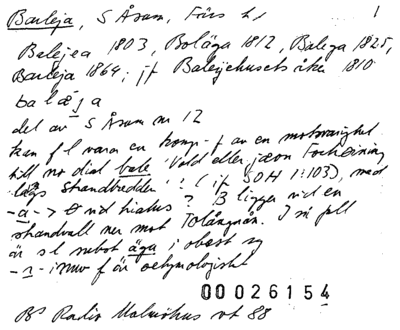 Barleja, S Åsum, Färs hd 1
Balejea 1803, Boläga 1812, Balega 1825,
Barleja 1864; jf Balejehusets åker 1810
balæja
del av S Åsum nr 12
kan f l vara en komp. f av en motsvarighet
till no dial bale 'Vold eller jævn Forhöining
langs Strandbredden' (jf SOH 1:103), med
-a- > ø vid hiatus? B ligger vid en
strandvall ner mot Tolångaån. I så fall
är s l subst äga i obest sg
-r- i nuv f är oetymologiskt
00026154
Bs Radix Malmöhus vt 88